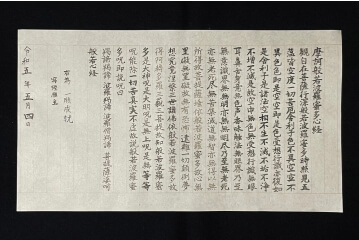 摩訶般若波羅蜜多心経
観自在菩薩行深般若波羅蜜多時照見五
蘊皆空度一切苦厄舎利子色不異空空不
異色色即是空空即是色受想行識亦復如
是舎利子是諸法空相不生不滅不垢不浄
不増不減是故空中無色無受想行識無眼
耳鼻舌身意無色声香味触法無眼界乃至
無意識界無無明亦無無明尽乃至無老死
亦無老死尽無苦集滅道無智亦無得以無
所得故菩提薩埵依般若波羅蜜多故心無
罣礙無罣礙故無有恐怖遠離一切顛倒夢
想究竟涅槃三世諸佛依般若波羅蜜多故
得阿耨多羅三藐三菩提故知般若波羅蜜
多是大神呪是大明呪是無上呪是無等等
呪能除一切苦真実不虚故説般若波羅蜜
多呪即説呪曰
羯諦羯諦波羅羯諦波羅僧羯諦菩提薩婆訶
般若心経
右為
願主
令和五年五月四日